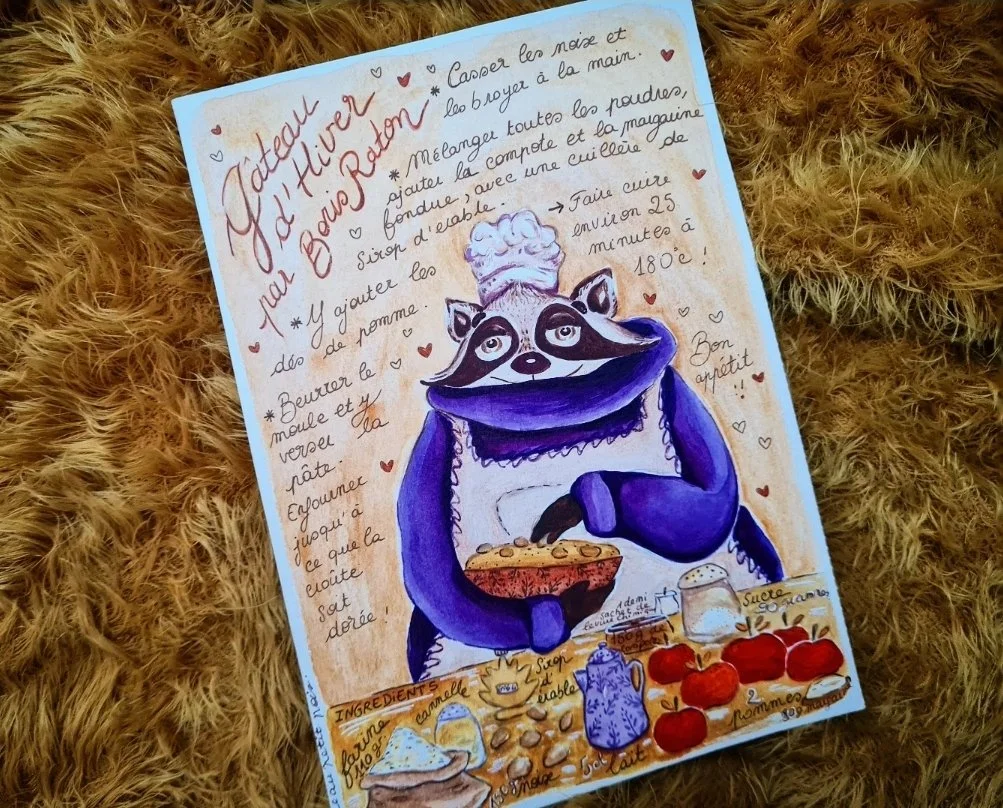 Gâteau
d'Hiver
par Boris Raton
* Casser les noix et
les broyer à la main.
* Mélanger toutes les poudres,
ajouter la compote et la margarine
fondue, avec une cuillère de
Sirop d'érable.
→ Faire cuire
environ 25
minutes à
180°c !
* Y ajouter les
dés de pomme.
* Beurrer le
moule et y
verser la
pâte.
Enfourner
jusqu'à
ce que la
croûte
soit
dorée !
Bon
appétit
!!
INGREDIENTS
farine
cannelle
Sirop
d'
érable
noix
lait
1 demi
sachet de
levure chimique
compote
Sucre
2
pommes